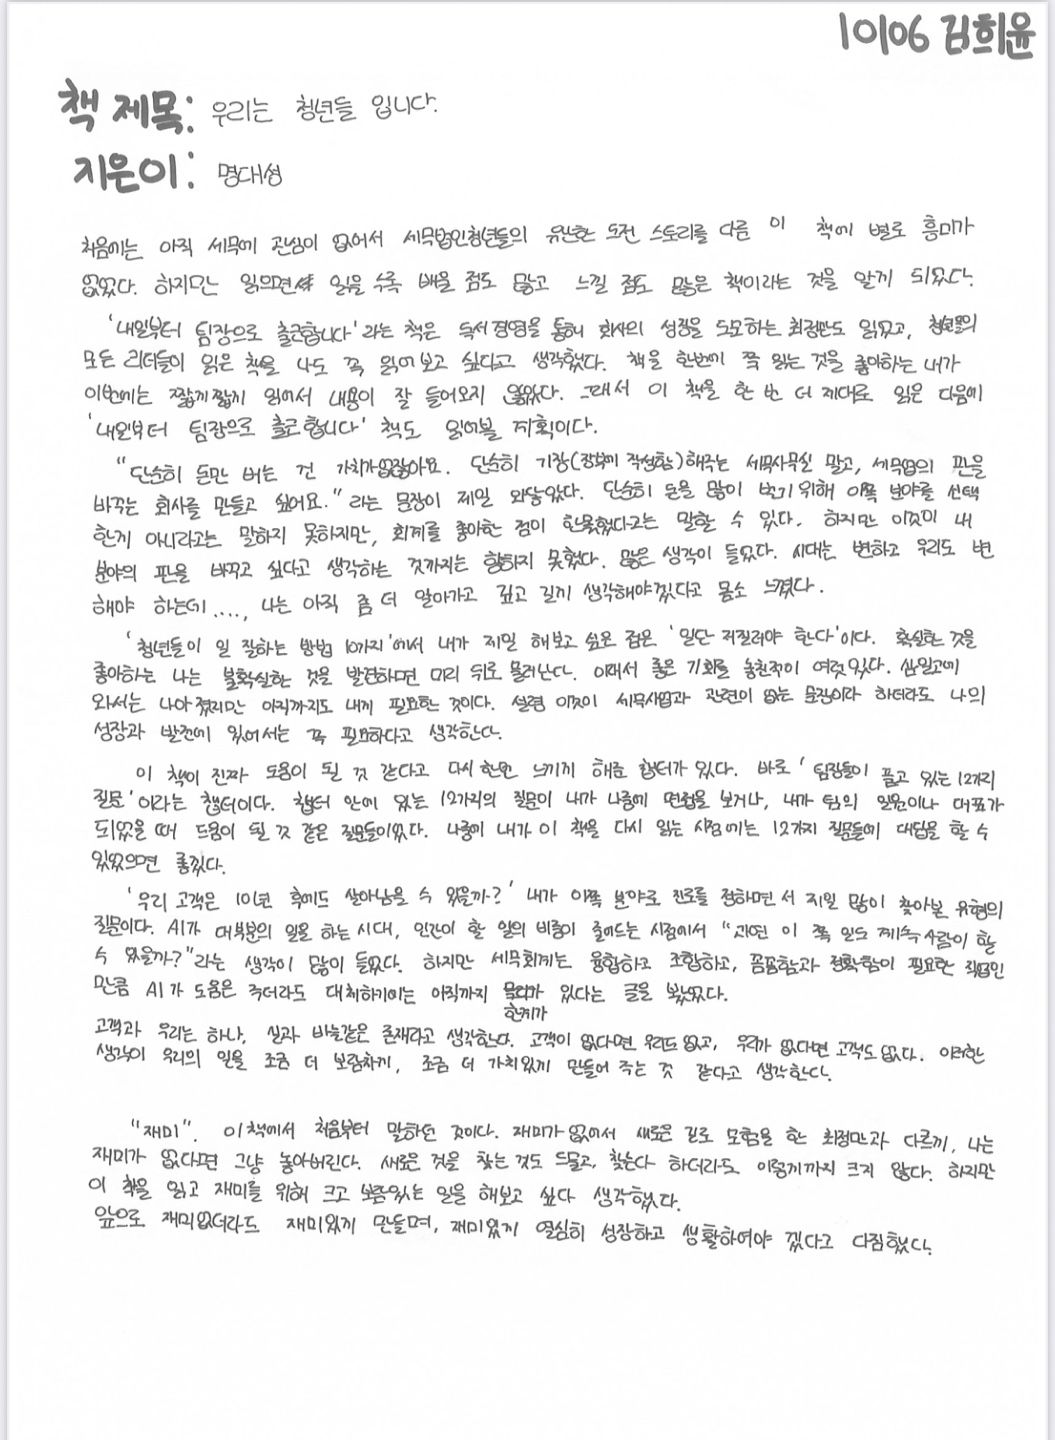 10106 김희윤
책 제목: 우리는 청년들 입니다.
지은이: 명대성
처음에는 아직 세무에 관심이 없어서 세무법인청년들의 유난한 도전 스토리를 다룬 이 책에 별로 흥미가
없었다. 하지만 읽으면서 읽을 수록 배울 점도 많고 느낄 점도 많은 책이라는 것을 알게 되었다.
'내일부터 팀장으로 출근합니다'라는 책은 독서경영을 통해 회사의 성장을 도모하는 최정만도 읽었고, 청년들의
모든 리더들이 읽은 책을 나도 꼭 읽어보고 싶다고 생각했다. 책을 한번에 쭉 읽는 것을 좋아하는 내가
이번에는 짧게짧게 읽어서 내용이 잘 들어오지 않았다. 그래서 이 책을 한 번 더 제대로 읽은 다음에
'내일부터 팀장으로 출근합니다' 책도 읽어볼 계획이다.
"단순히 돈만 버는 건 가치가없잖아요. 단순히 기장(장부에 작성함)해주는 세무사무실 말고, 세무업의 판을
바꾸는 회사를 만들고 싶어요." 라는 문장이 제일 와닿았다. 단순히 돈을 많이 벌기 위해 이쪽 분야를 선택
한게 아니라고는 말하지 못하지만, 회계를 좋아한 점이 한몫했다고는 말할 수 있다. 하지만 이것이 내
분야의 판을 바꾸고 싶다고 생각하는 것까지는 향하지 못했다. 많은 생각이 들었다. 시대는 변하고 우리도 변
해야 하는데...., 나는 아직 좀 더 알아가고 깊고 길게 생각해야겠다고 몸소 느꼈다.
'청년들이 일 잘하는 방법 10가지'에서 내가 제일 해보고 싶은 점은 '일단 저질러야 한다'이다. 확실한 것을
좋아하는 나는 불확실한 것을 발견하면 미리 뒤로 물러난다. 이래서 좋은 기회를 놓친적이 여럿있다. 삼일고에
와서는 나아졌지만 아직까지도 내게 필요한 것이다. 설령 이것이 세무사업과 관련이 없는 문장이라 하더라도 나의
성장과 발전에 있어서는 꼭 필요하다고 생각한다.
이 책이 진짜 도움이 될 것 같다고 다시 한번 느끼게 해준 챕터가 있다. 바로 '팀장들이 품고 있는 12가지
질문'이라는 챕터이다. 챕터 안에 있는 12가지의 질문이 내가 나중에 면접을 보거나, 내가 팀의 일원이나 대표가
되었을 때 도움이 될 것 같은 질문들이었다. 나중에 내가 이 책을 다시 읽는 시점에는 12가지 질문들에 대답을 할 수
있었으면 좋겠다.
'우리 고객은 10년 후에도 살아남을 수 있을까?' 내가 이쪽 분야로 진로를 정하면서 제일 많이 찾아본 유형의
질문이다. AI가 대부분의 일을 하는 시대, 인간이 할 일의 비중이 줄어드는 시점에서 "과연 이 쪽 일도 계속 사람이 할
수 있을까?"라는 생각이 많이 들었다. 하지만 세무회계는 융합하고 조합하고, 꼼꼼함과 정확함이 필요한 직업인
만큼 AI가 도움은 주더라도 대체하기에는 아직까지 있다는 글을 봤었다.
한계가
고객과 우리는 하나, 실과 바늘같은 존재라고 생각한다. 고객이 없다면 우리도 없고, 우리가 없다면 고객도 없다. 이러한
생각이 우리의 일을 조금 더 보람차게, 조금 더 가치있게 만들어 주는 것 같다고 생각한다.
"재미". 이 책에서 처음부터 말하던 것이다. 재미가 없어서 새로운 길로 모험을 한 최정만과 다르게, 나는
재미가 없다면 그냥 놓아버린다. 새로운 것을 찾는 것도 드물고, 찾는다 하더라도 이렇게까지 크지 않다. 하지만
이 책을 읽고 재미를 위해 크고 보람있는 일을 해보고 싶다 생각했다.
앞으로 재미없더라도 재미있게 만들며, 재미있게 열심히 성장하고 생활하여야 겠다고 다짐했다.